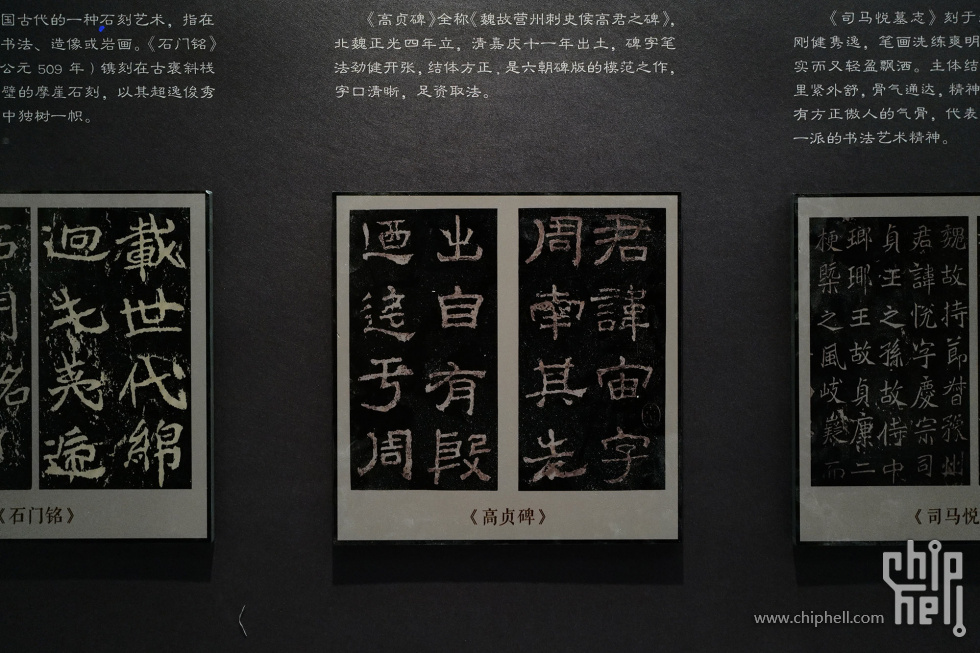 国古代的一种石刻艺术，指在
书法、造像或岩画。《石门铭》
公元 509 年）镌刻在古褒斜栈
壁的摩崖石刻，以其超逸俊秀
中独树一帜。
《高贞碑》全称《魏故营州刺史侯高君之碑》，
北魏正光四年立，清嘉庆十一年出土，碑字笔
法劲健开张，结体方正，是六朝碑版的模范之作，
字口清晰，足资取法。
《司马悦墓志》刻于
刚健隽逸，笔画洗练爽明
实而又轻盈飘洒。主体结
里紧外舒，骨气通达，精神
有方正傲人的气骨，代表
一派的书法艺术精神。
載世代綿
迴屯夷遞
石門銘
《石门铭》
君諱宙字
周南其先
出自有殷
迺于周
《高贞碑》
魏故持節督豫州
君諱悅字慶宗司
貞王之孫故侍中
瑯琊王故貞康二
梗槩之風岐嶷而
《司马悦
chip
hell
www.chiphell.com